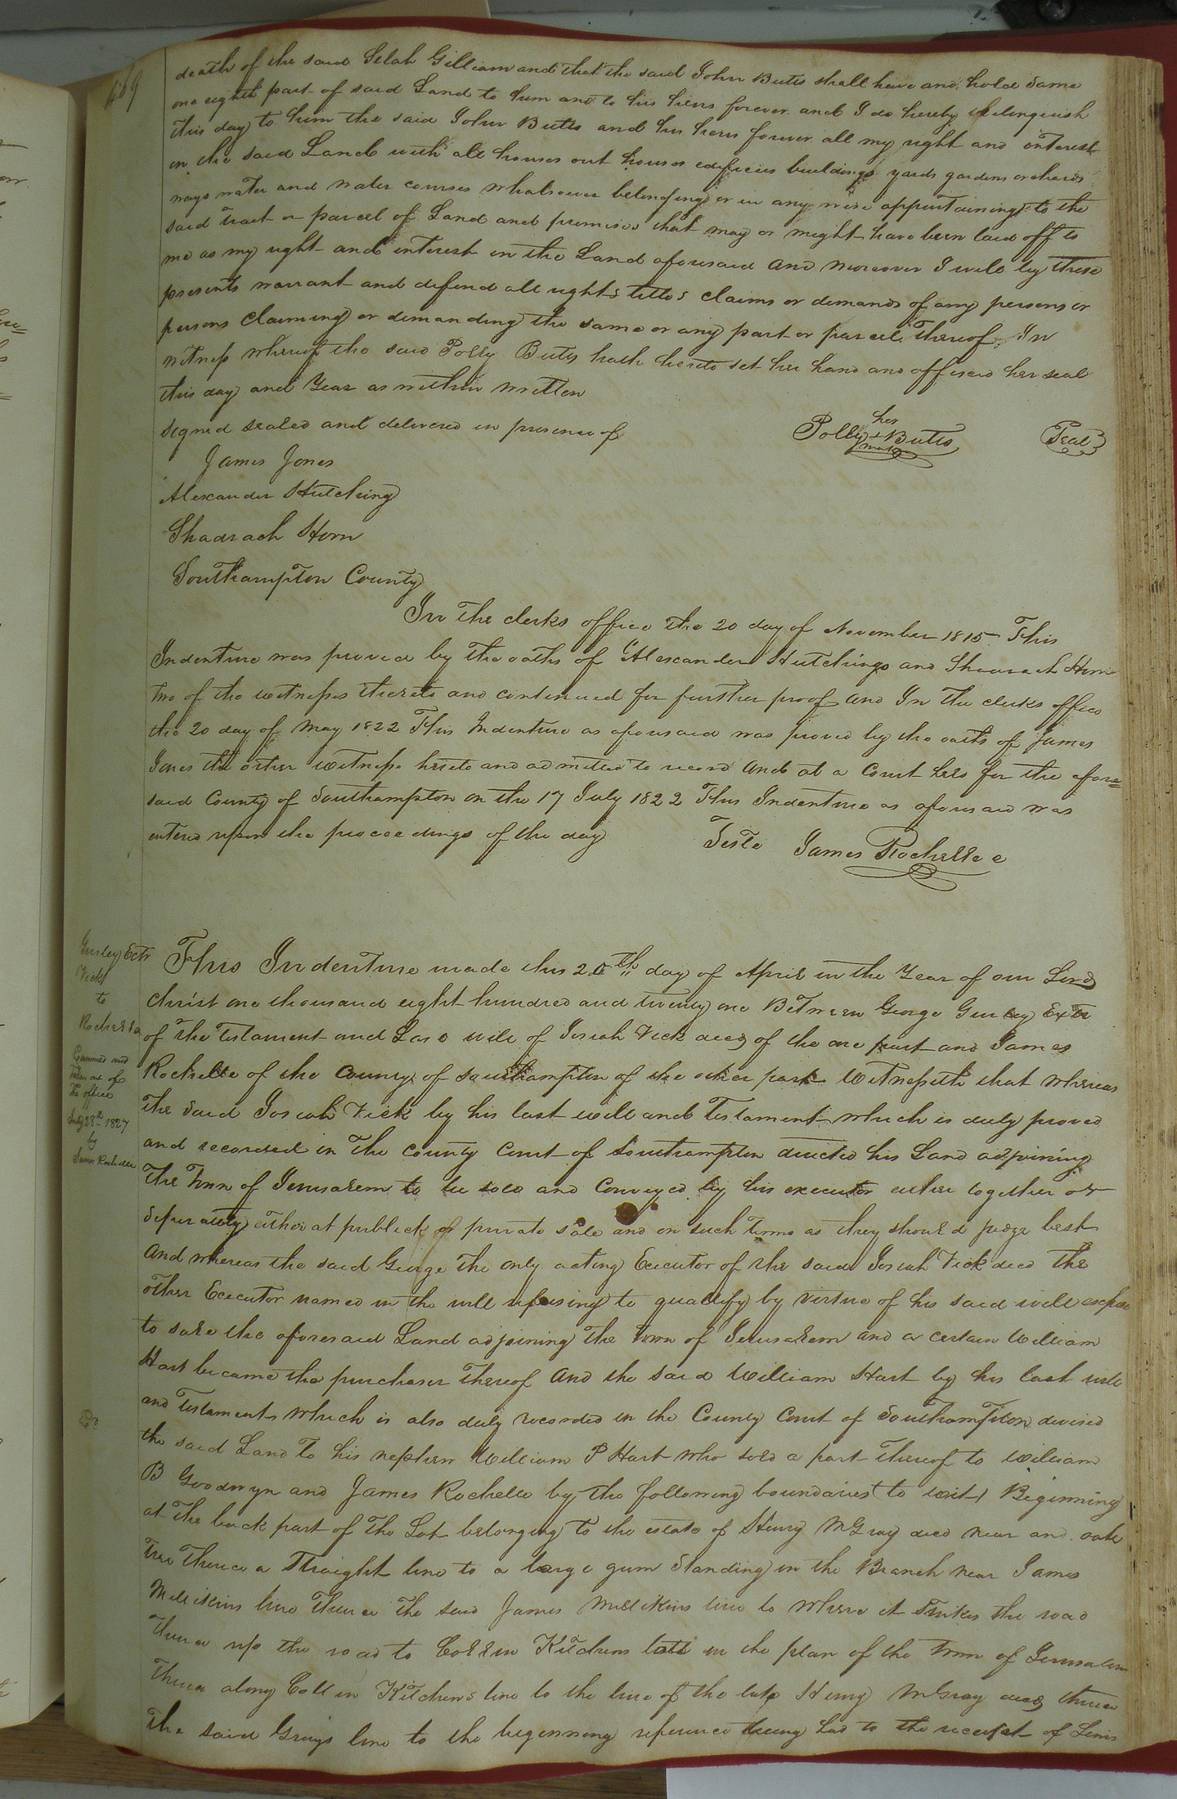 469
death of the said Selah Gilliam and that the said John Butts shall have and hold same
one eighth part of said Land to him and to his hiers forever and I do hereby relinquish
this day to him the said John Butts and his hiers forever all my right and interest
in the said Land with all houses out houses edifices buildings yards gardens orchards
ways water and water courses whatsoever belonging or in any wise appertaining to the
said tract or parcel of Land and premises that may or might have been laid off to
me as my right and interest in the Land aforesaid and moreover I will by these
presents warrant and defend all rights titles claims or demands of any persons or
persons claiming or demanding the same or any part or parcel thereof. In
witness whereof the said Polly Butts hath hereto set her hand and affixed her seal
this day and Year as within written
signed sealed and delivered in presence of
her
Polly + Butts Seal
mark
James Jones
Alexander Hutching
Shadrach Horn
Southampton County
In the clerks office the 20 day of November 1815 This
Indenture was proved by the oaths of Alexander Hutchings and Shadrach Horn
two of the witnesses thereto and continued for further proof and In the clerks office
the 20 day of May 1822 This Indenture as aforesaid was proved by the oath of James
Jones the other witness hereto and admitted to record and at a Court held for the afore=
said County of Southampton on the 17 July 1822 This Indenture as aforesaid was
entered upon the proceedings of the day
Teste James Rochelle c
Gurley Extr
Vick
to
Rochelle
Examined and
taken out of
the office
July 28th 1827
by
James Rochelle
This Indenture made this 20th day of April in the Year of our Lord
Christ one thousand eight hundred and twenty one Between George Gurley Extr
of the Testament and Last will of Josiah Vick decd of the one part and James
Rochelle of the County of Southampton of the other part Witnesseth that whereas
the said Josiah Vick by his last will and Testament which is duly proved
and recorded in the County Court of Southampton directed his Land adjoining
the Town of Jerusalem to be sold and Conveyed by his executor either together or
seperately either at publick or private sale and on such terms as they should judge best
And whereas the said George the only acting Executor of the said Josiah Vick decd the
other Executor named in the will refusing to qualify by virtue of his said will
to sale the aforesaid Land adjoining the Town of Jerusalem and a certain William
Hart became the purchaser thereof And the said William Hart by his last will
and Testament which is also duly recorded in the County Court of Southampton devised
the said Land to his nephew William P Hart who sold a part thereof to William
B Goodwyn and James Rochelle by the following boundaries to wit, Beginning
at the back part of the Lot belonging to the estate of Henry McGray decd near an oak
tree Thence a Straight line to a large gum Standing in the Branch near James
Millikins line Thence the said James Millikins line to where it Strikes the road
thence up the road to Collin Kitchens lott in the plan of the Town of Jerusalem
thence along Collin Kitchens line to the line of the late Henry McGray decd thence
the said Grays line to the beginning reference being had to the receipt of Lewis